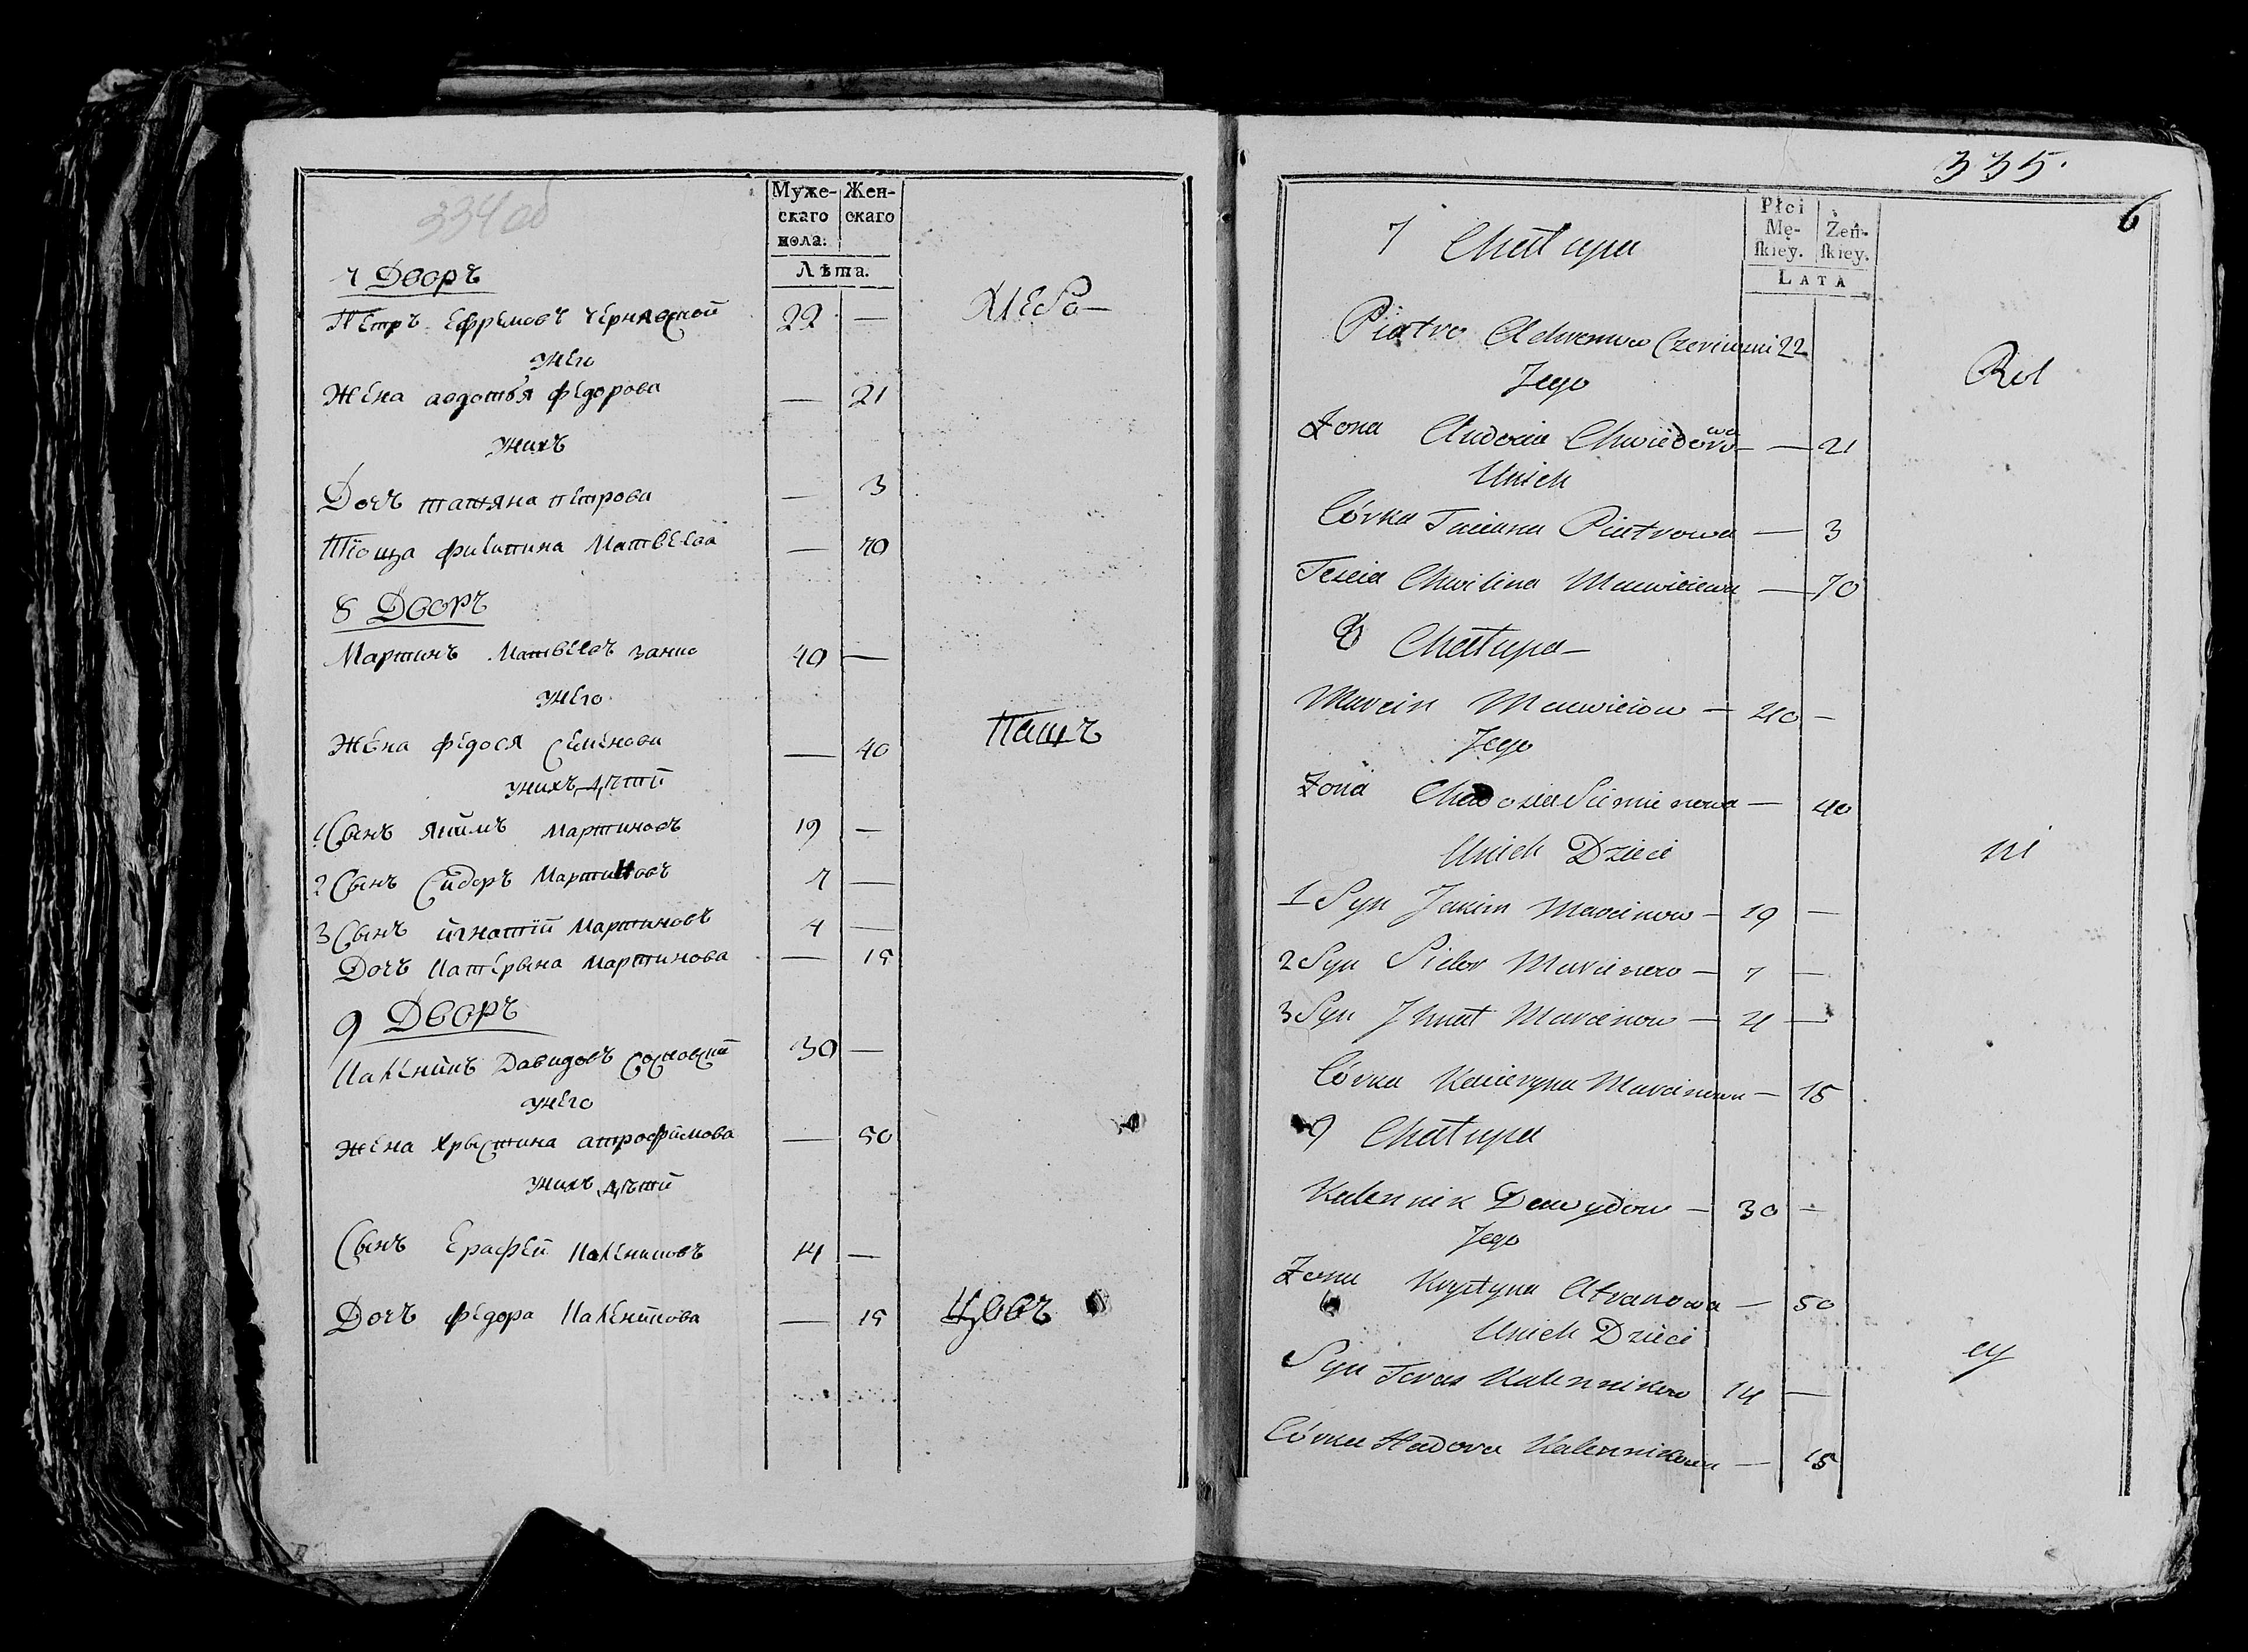 334 об
Муже- Жен-
скаго скаго
пола:
Лѣта.
7 Дворъ
Петръ Ефремовъ Чернявской 22 —
Хлебо—
унего
Жена авдотья федорова — 21
унихъ
Дочъ татяна петрова — 3
Тіоща филипина Матвеева — 70
8 Дворъ
Мартинъ Матвеевъ занко 40 —
унего
Жена федося Семенова — 40
Пашъ
унихъ дѣти
1 Сынъ якимъ Мартиновъ 19 —
2 Сынъ Сидоръ Мартиновъ 7 —
3 Сынъ игнатій Мартиновъ 4 —
Дочъ Катерына Мартинова — 15
9 Дворъ
Каленикъ Давидовъ 30 —
унего
жена Хрыстина атрофимова — 50
унихъ дѣти
Сынъ Ерафей Калениковъ 14 —
Дочъ федора Каленикова — 15
Цовъ
335.
6
Płci
Mę- Żeń-
skiey. skiey.
LATA
7 Chałupa
Piotro Achremow Czerniawski 22
Jego
Rol
Zona Audocia Chwiedorowa — 21
Unich
Córka Taciana Piatrowa — 3
Tescia Chwilina Macwieiewa — 70
8 Chałupa—
Marcin Macwieiow — 40 —
Jego
Zona Chwedosia Siemienowa — 40
Unich Dzieci
ni
1 Syn Jakim Marcinow — 19 —
2 Syn Sidor Marcinow — 7 —
3 Syn Ihnat Marcinow — 4 —
Córka Kacieryna Marcinowa — 15
9 Chałupa
Kalennik Dawydow — 30 —
Jego
Zona Krystyna Atranowa — 50
Unich Dzieci
cy
Syn Taras Kalennikow 14 —
Córka Hadora Kalennikowa — 15